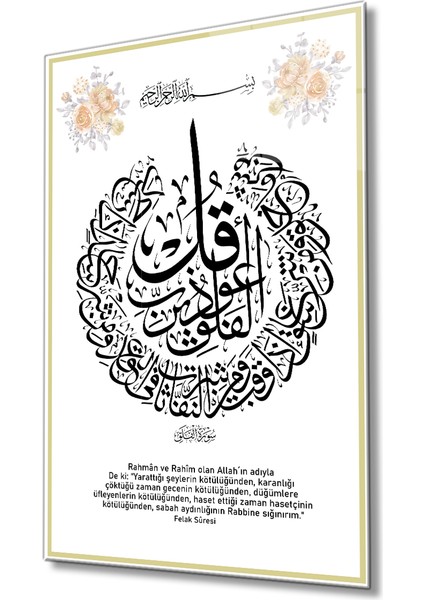 بسم الله الرحمن الرحيم
قل أعوذ برب الفلق
من شر ما خلق
ومن شر غاسق إذا وقب
ومن شر النفاثات في العقد
ومن شر حاسد إذا حسد
سورة الفلق
Rahmân ve Rahîm olan Allah´ın adıyla
De ki: "Yarattığı şeylerin kötülüğünden, karanlığı
çöktüğü zaman gecenin kötülüğünden, düğümlere
üfleyenlerin kötülüğünden, haset ettiği zaman hasetçinin
kötülüğünden, sabah aydınlığının Rabbine sığınırım."
Felak Sûresi